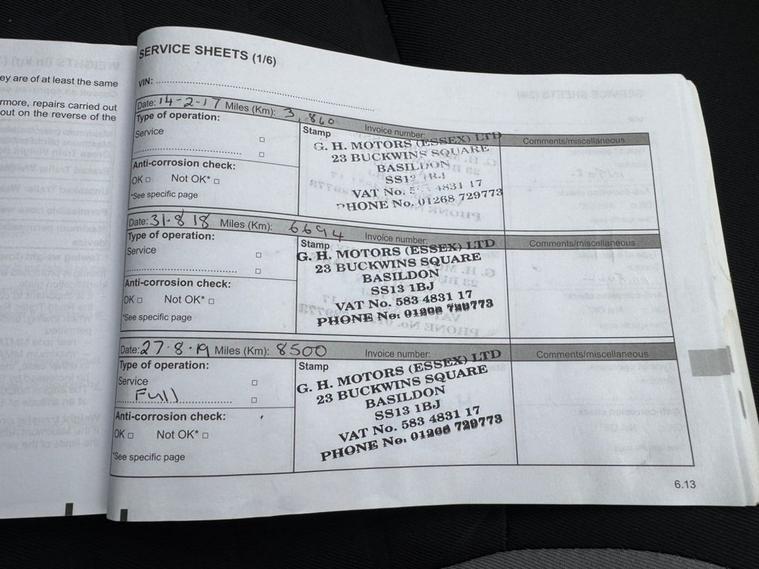 ey are of at least the same
rmore, repairs carried out
out on the reverse of the
SERVICE SHEETS (1/6)
VIN:
Date: 14-2-17 Miles (Km): 3,860 Invoice number: Comments/miscellaneous
Type of operation:
Service
Anti-corrosion check:
OK □ Not OK* □
*See specific page
Stamp
G. H. MOTORS (ESSEX) LTD
23 BUCKWINS SQUARE
BASILDON
SS13 1BJ
VAT No. 4831 17
PHONE No. 01268 729773
Date: 31-8 18 Miles (Km): 6694 Invoice number: Comments/miscellaneous
Type of operation:
Service
Anti-corrosion check:
OK □ Not OK* □
*See specific page
Stamp
G. H. MOTORS (ESSEX) LTD
23 BUCKWINS SQUARE
BASILDON
SS13 1BJ
VAT No. 583 4831 17
PHONE No: 01268 729773
Date: 27-8-19 Miles (Km): 8500 Invoice number: Comments/miscellaneous
Type of operation:
Service
Full
Anti-corrosion check:
OK □ Not OK* □
*See specific page
Stamp
G. H. MOTORS (ESSEX) LTD
23 BUCKWINS SQUARE
BASILDON
SS13 1BJ
VAT No. 583 4831 17
PHONE No: 01268 729773
6.13